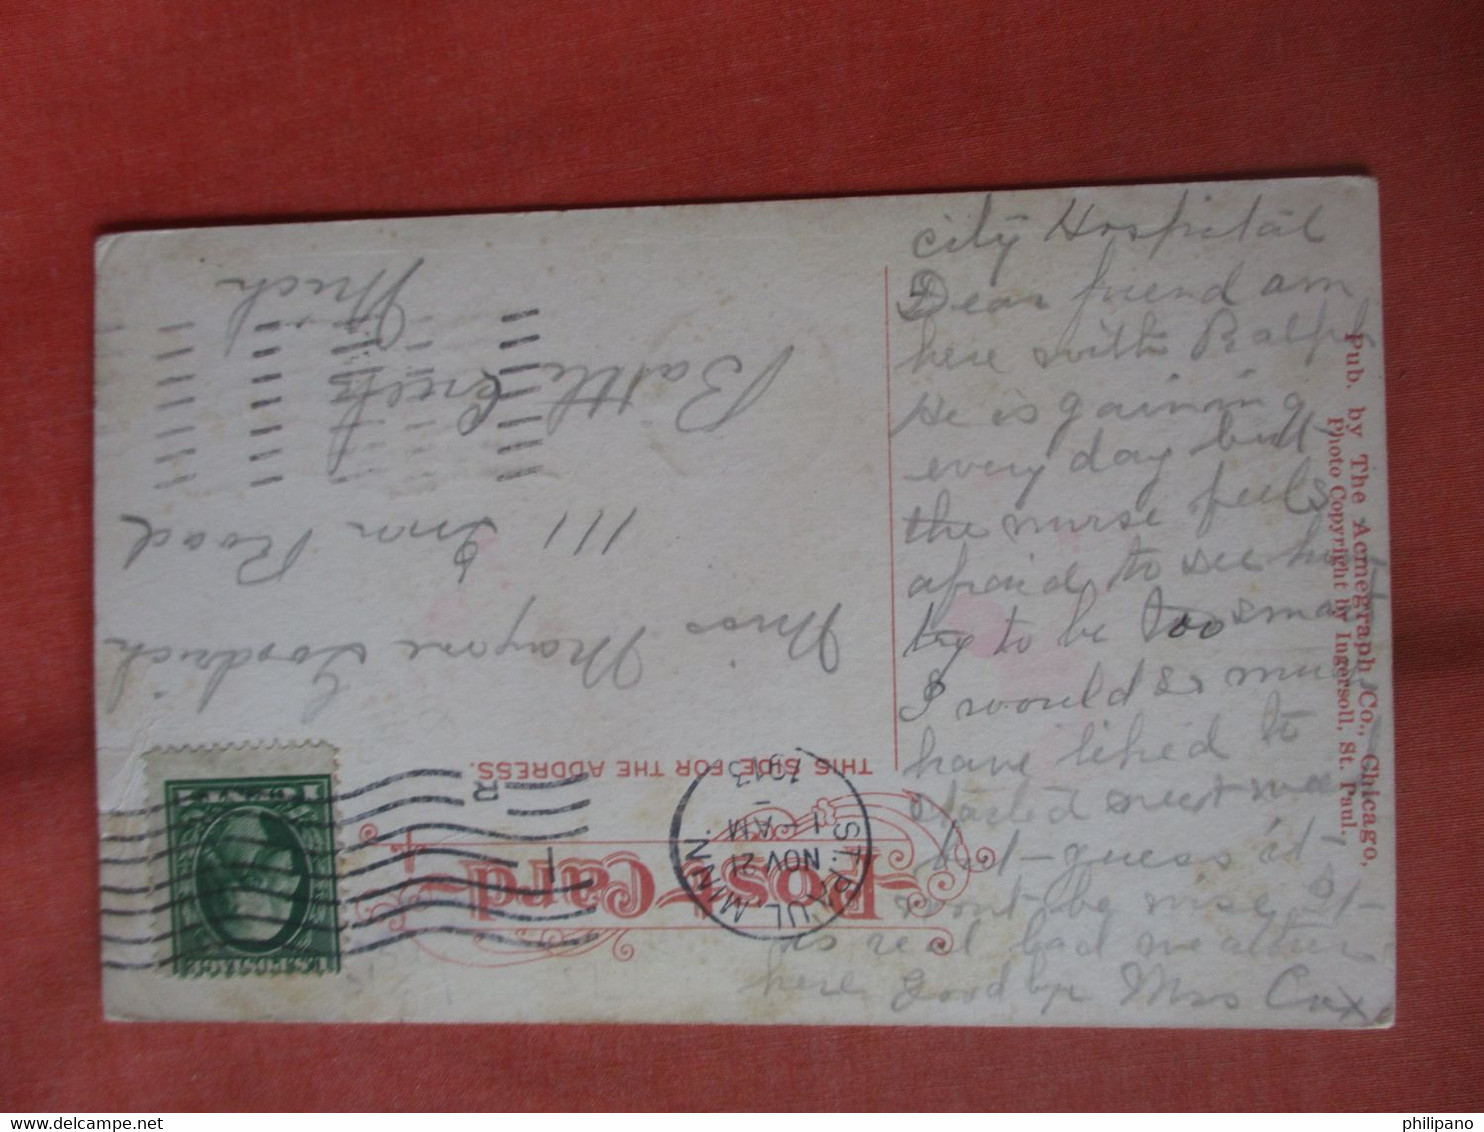 city Hospital
Dear friend am
here with Ralph
He is gaining
every day but
the nurse feels
afraid to see him
try to be too smart
I would so much
have liked to
started next
but guess it
wont be wise it
is real bad weather
here good by Mrs Cox
Pub. by The Acmegraph Co., Chicago,
Photo Copyright by Ingersoll, St. Paul.
Post Card
THIS SIDE FOR THE ADDRESS.
ST. PAUL, MINN.
NOV 21
1 - AM
1913
R
1
Miss Goodrich
111 Road
Battle Creek
Mich
philipano